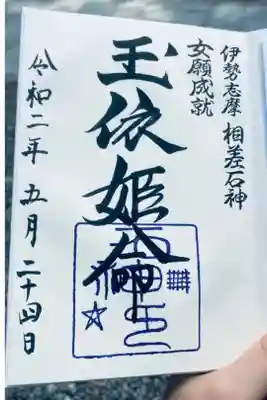 伊勢志摩 相差石神
女願成就
玉依姫命
令和二年 五月 二十四日